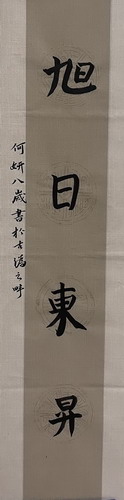 旭日東昇
何妍八歲書於古潞之畔